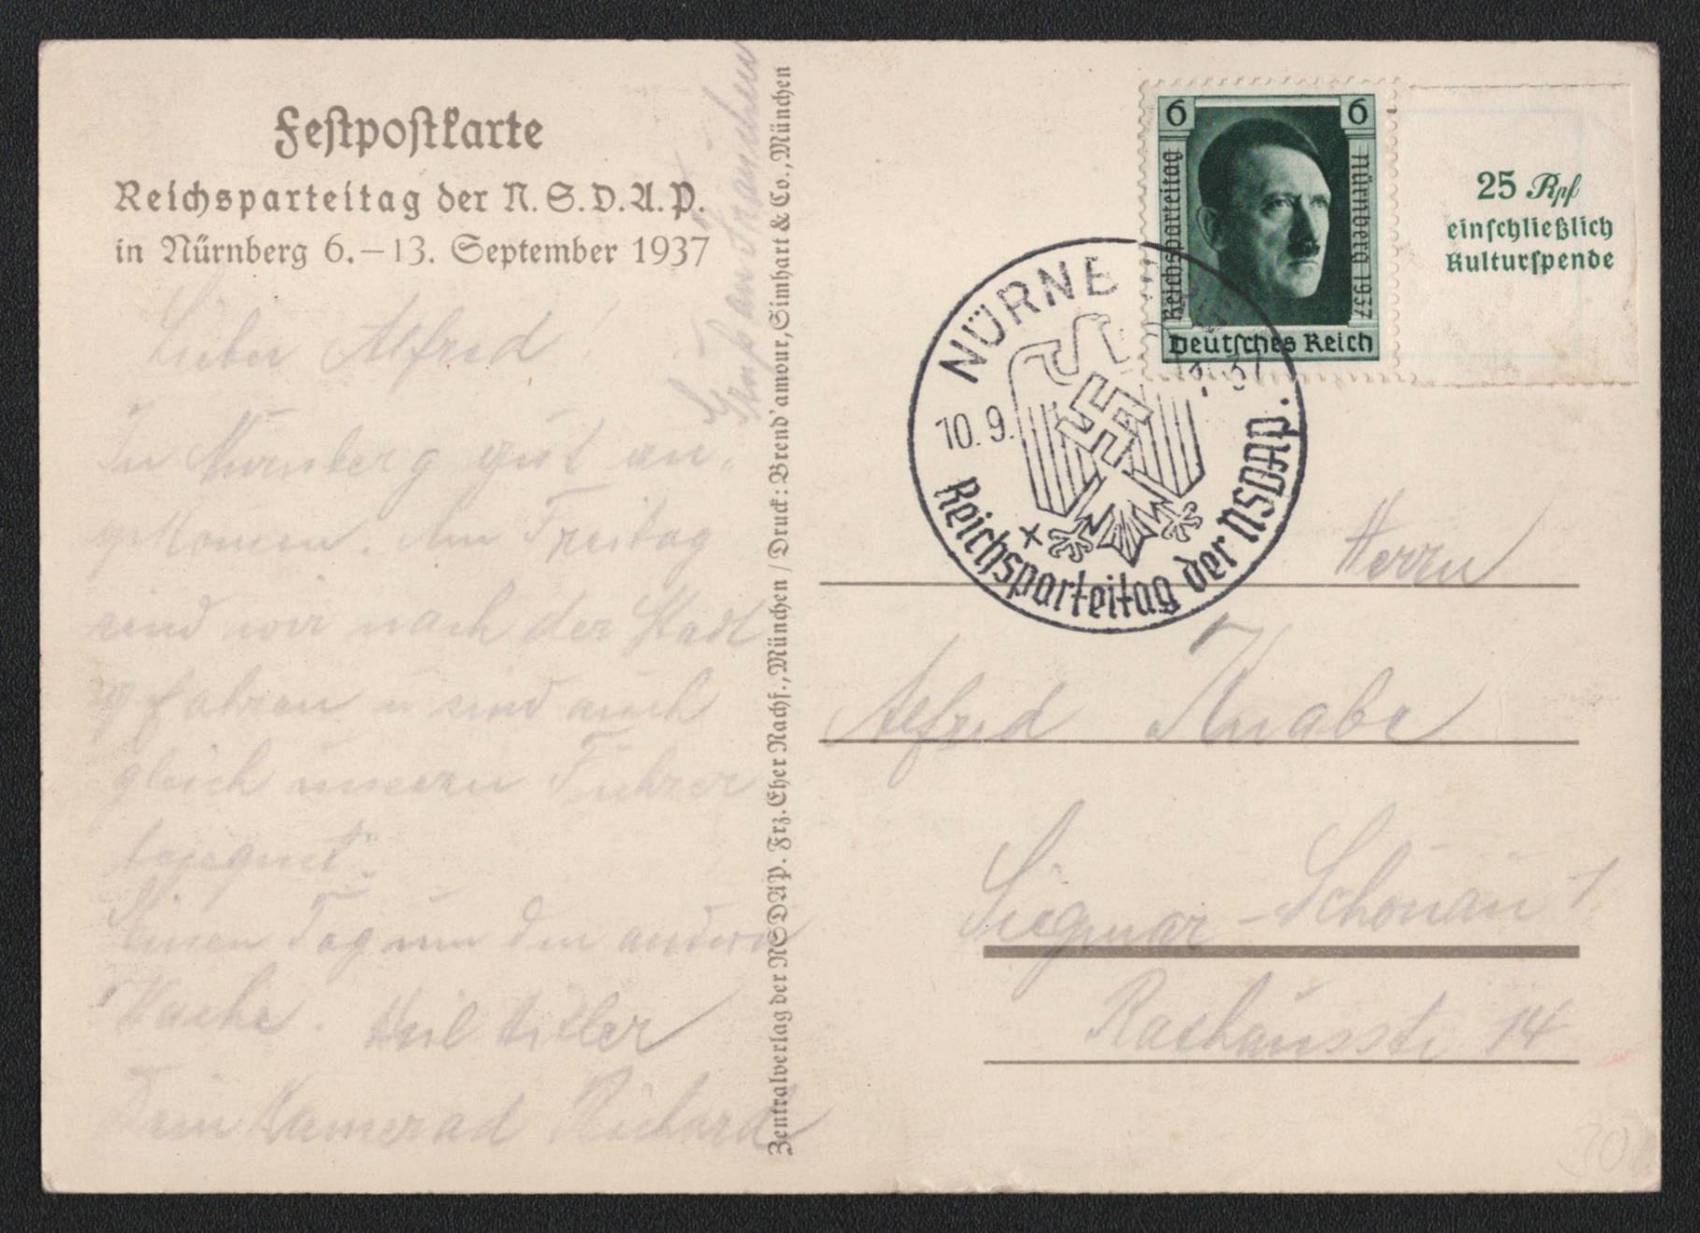 Festpostkarte
Reichsparteitag der N.S.D.A.P.
in Nürnberg 6.–13. September 1937
Lieber Alfred!
In Nürnberg gut an-
gekomen. Am Freitag
sind wir nach der Stadt
gefahren u sind auch
gleich unseren Führer
begegnet.
Einen Tag um den andern
Wache. Heil Hitler
Dein Kamerad Richard
Gruß an Frauchen
Zentralverlag der NSDAP. Frz. Eher Nachf., München / Druck: Brend'amour, Simhart & Co., München
6 6
Reichsparteitag
Nürnberg 1937
Deutsches Reich
25 Rpf
einschließlich
Kulturspende
NÜRNBE
10.9. 37
Reichsparteitag der NSDAP.
Herrn
Alfred Knabe
Siegmar-Schönau 1
Rathausstr 14
30